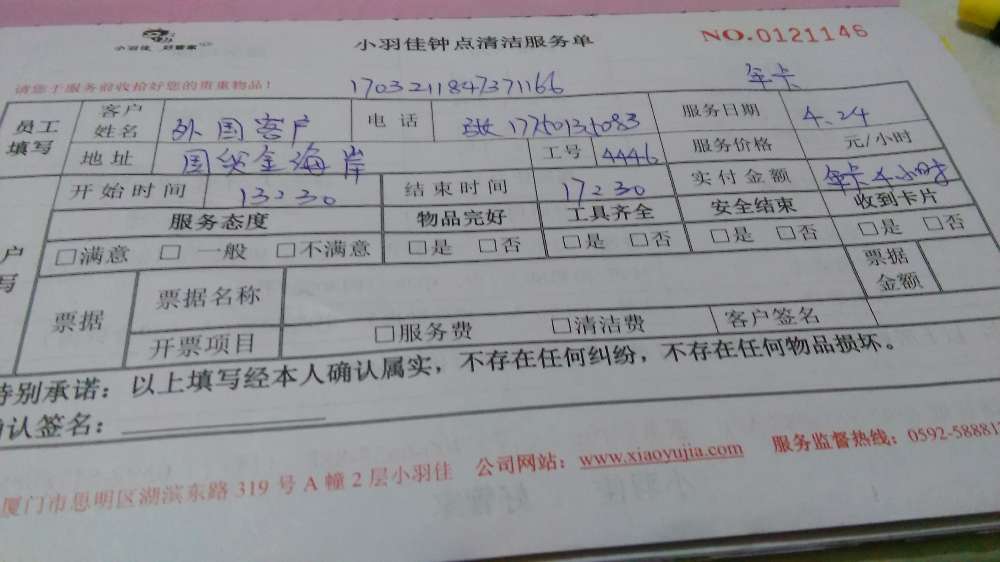 小羽佳 好管家
小羽佳钟点清洁服务单
NO.0121146
请您于服务前收拾好您的贵重物品!
1703211847371166
年卡
员工填写
客户姓名 外国客户 电话 服务日期 4.24
地址 海岸 工号 4446 服务价格 元/小时
开始时间 13:30 结束时间 17:30 实付金额 年卡4小时
服务态度 物品完好 工具齐全 安全结束 收到卡片
□满意 □一般 □不满意 □是 □否 □是 □否 □是 □否 □是 □否
户
写
票据 票据名称 票据金额
开票项目 □服务费 □清洁费 客户签名
特别承诺:以上填写经本人确认属实,不存在任何纠纷,不存在任何物品损坏。
确认签名:
厦门市思明区湖滨东路319号A幢2层小羽佳 公司网站:www.xiaoyujia.com 服务监督热线:0592-58881